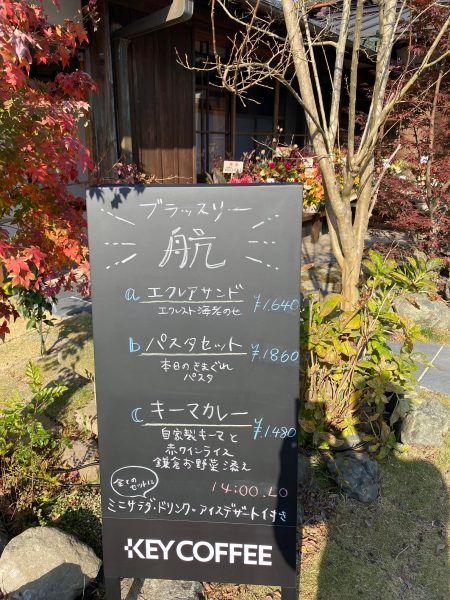 ブラッスリー
航
a エクレアサンド ¥1.640
エクレスト海老のせ
b パスタセット ¥1860
本日のきまぐれ
パスタ
c キーマカレー ¥1.480
自家製キーマと
赤ワインライス
鎌倉お野菜添え
14:00.LO
全ての
セットに
ミニサラダ・ドリンク・アイスデザート付き
KEY COFFEE